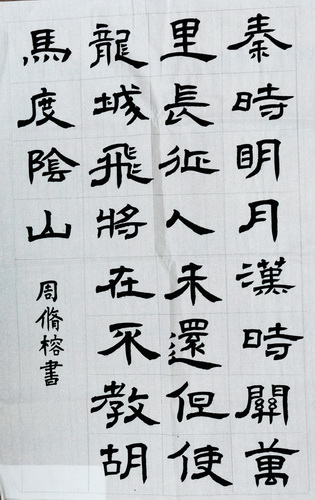 秦時明月漢時關萬
里長征人未還但使
龍城飛將在不教胡
馬度陰山
周脩榕書